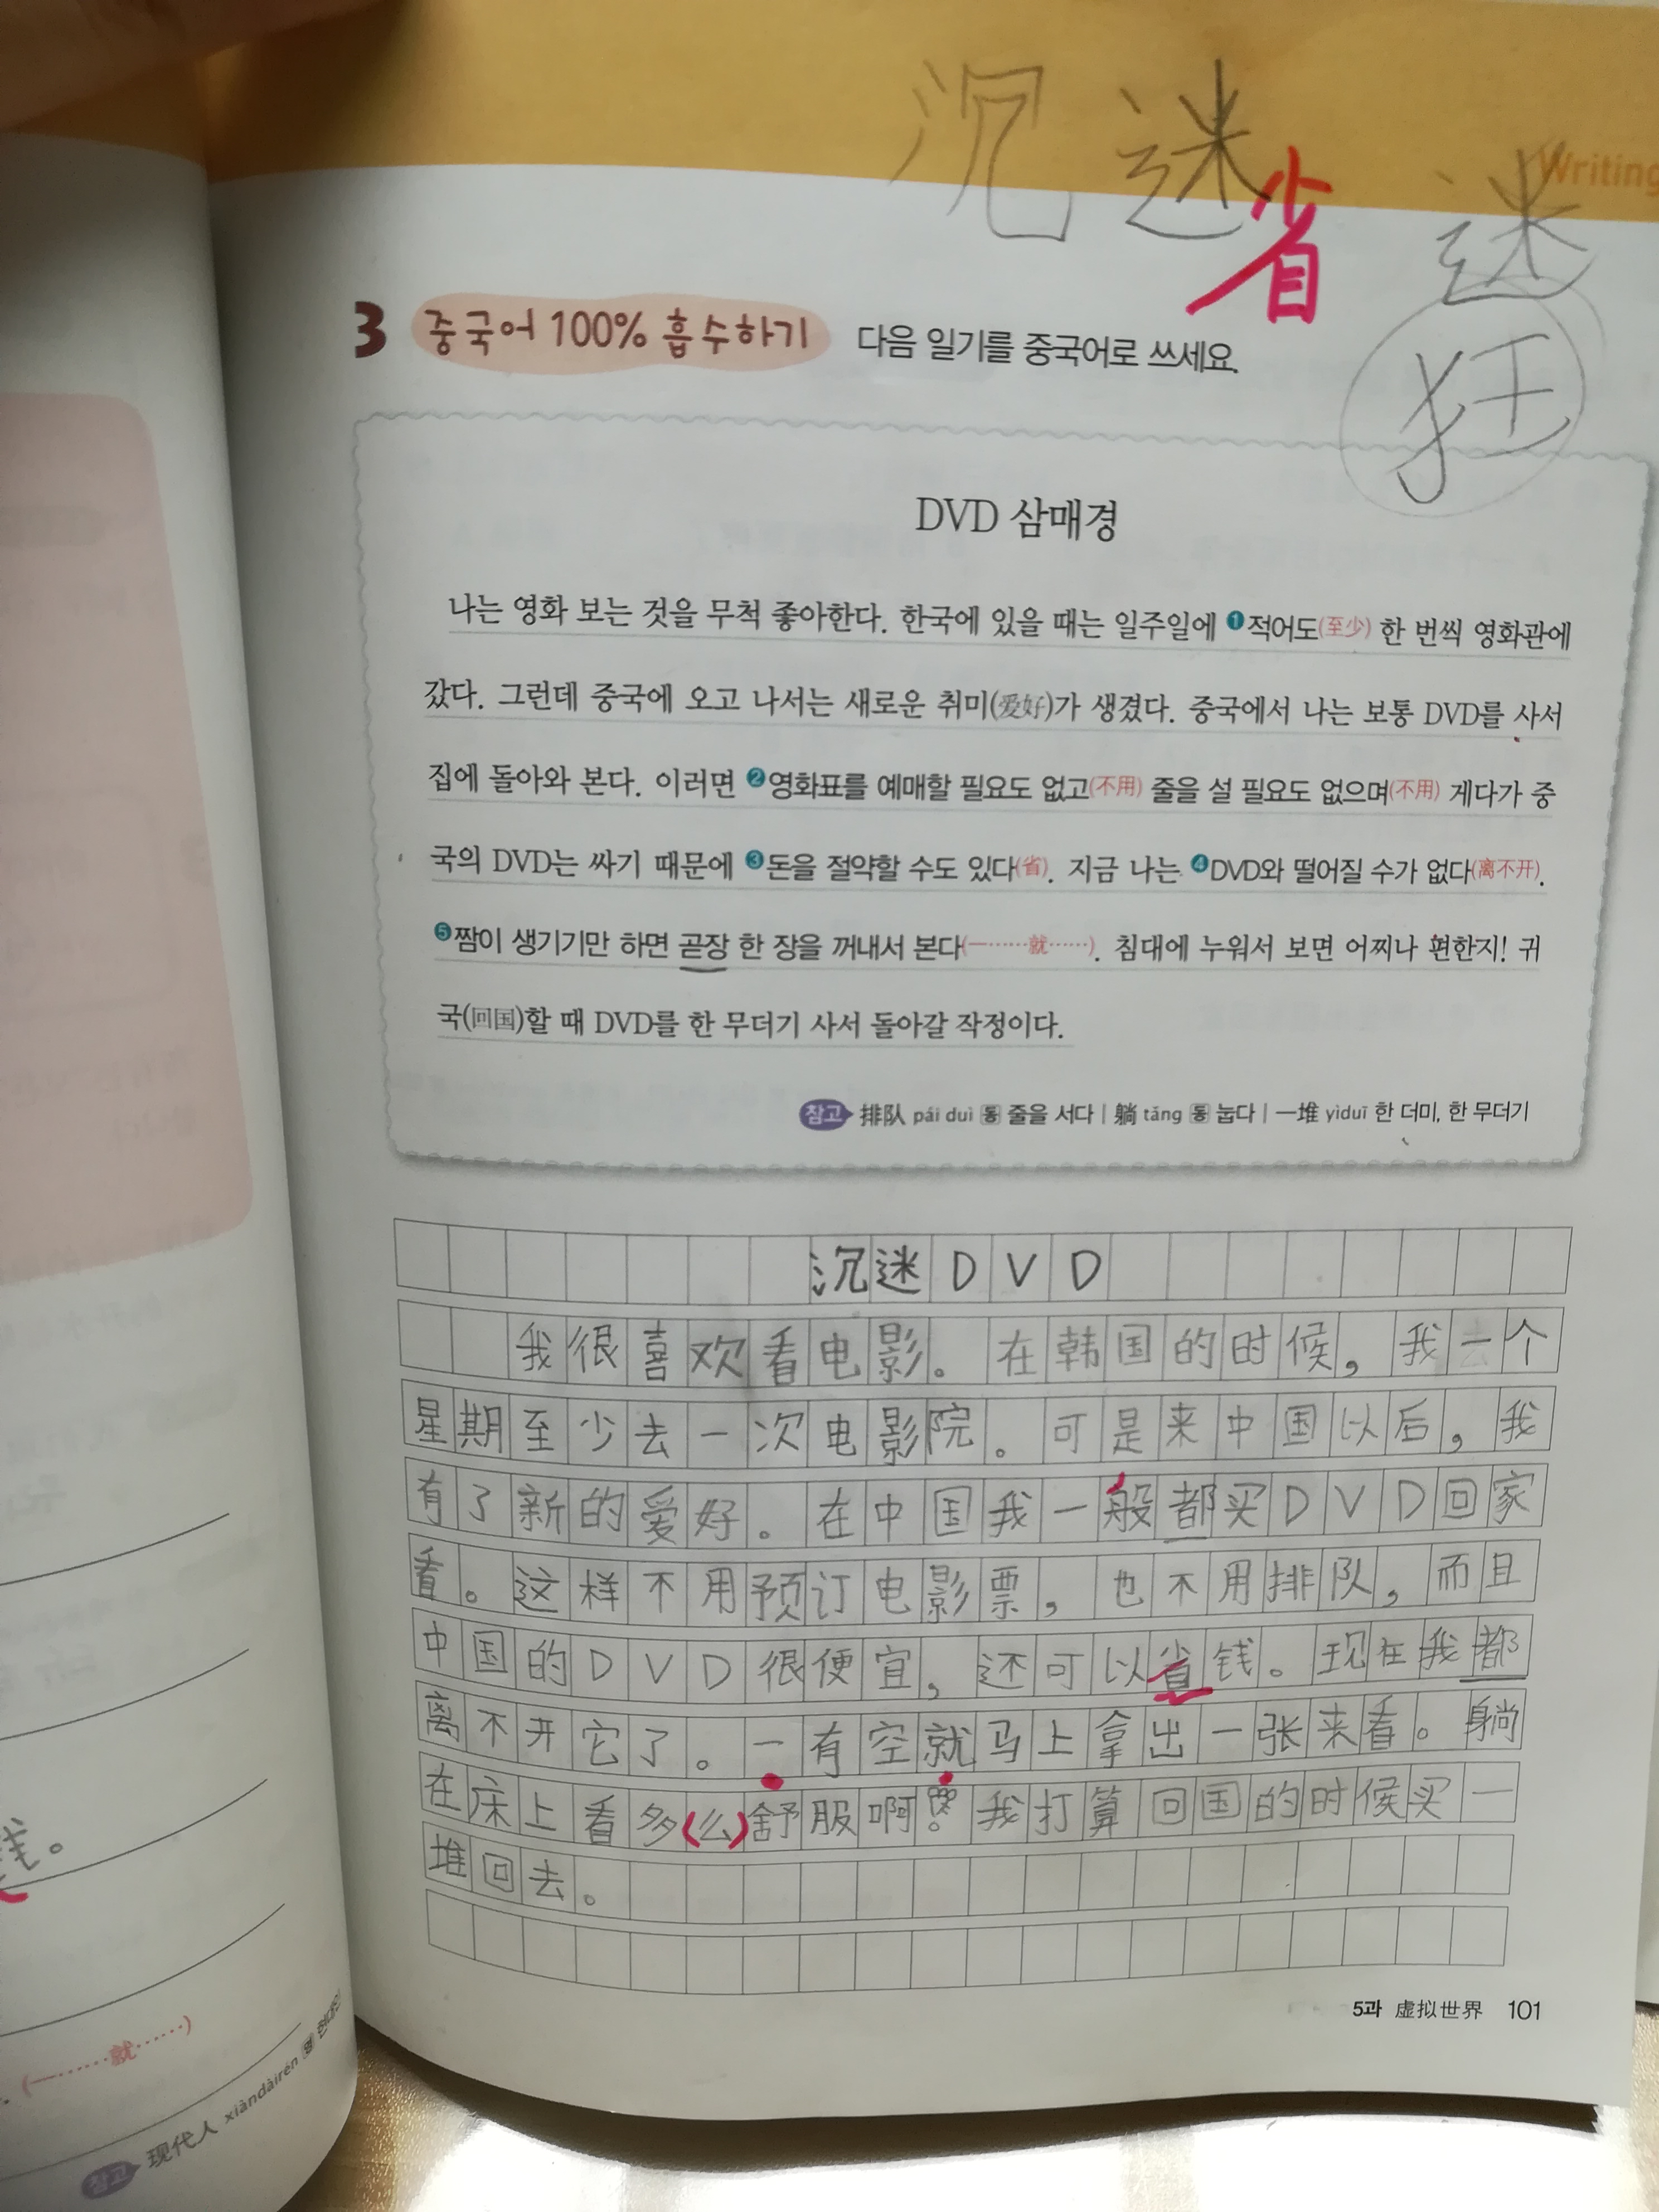 沉迷
Writing
省 迷
狂
3 중국어 100% 흡수하기 다음 일기를 중국어로 쓰세요.
DVD 삼매경
나는 영화 보는 것을 무척 좋아한다. 한국에 있을 때는 일주일에 ❶적어도(至少) 한 번씩 영화관에
갔다. 그런데 중국에 오고 나서는 새로운 취미(爱好)가 생겼다. 중국에서 나는 보통 DVD를 사서
집에 돌아와 본다. 이러면 ❷영화표를 예매할 필요도 없고(不用) 줄을 설 필요도 없으며(不用) 게다가 중
국의 DVD는 싸기 때문에 ❸돈을 절약할 수도 있다(省). 지금 나는 ❹DVD와 떨어질 수가 없다(离不开).
❺짬이 생기기만 하면 곧장 한 장을 꺼내서 본다(一……就……). 침대에 누워서 보면 어찌나 편한지! 귀
국(回国)할 때 DVD를 한 무더기 사서 돌아갈 작정이다.
참고 排队 pái duì 동 줄을 서다 | 躺 tǎng 동 눕다 | 一堆 yìduī 한 더미, 한 무더기
沉迷DVD
我很喜欢看电影。在韩国的时候,我一个
星期至少去一次电影院。可是来中国以后,我
有了新的爱好。在中国我一般都买DVD回家
看。这样不用预订电影票,也不用排队,而且
中国的DVD很便宜,还可以省钱。现在我都
离不开它了。一有空就马上拿出一张来看。躺
在床上看多(么)舒服啊!我打算回国的时候买一
堆回去。
5과 虚拟世界 101
钱。
(一……就……)
참고 现代人 xiàndàirén 명 현대인